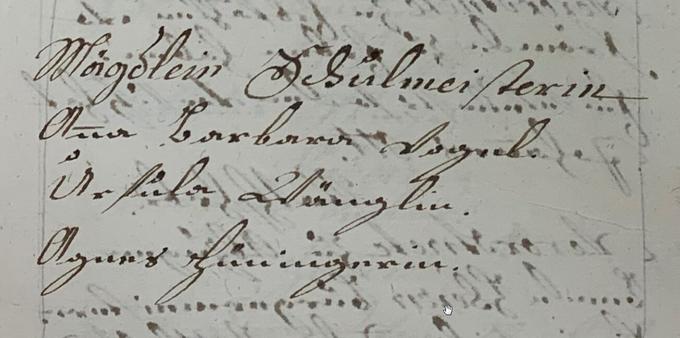 Mägdlein Schulmeisterin
Aña Barbara Vogel.
Ursula Wänglin.
Agnes Hüningerin.